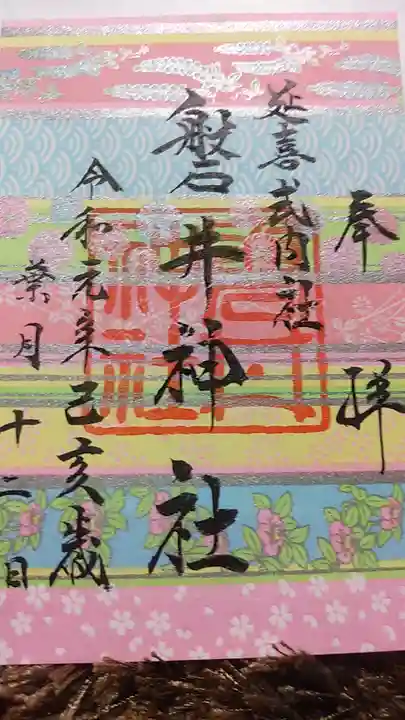 奉拝
延喜式内社
磐井神社
令和元年己亥歳
葉月十二日